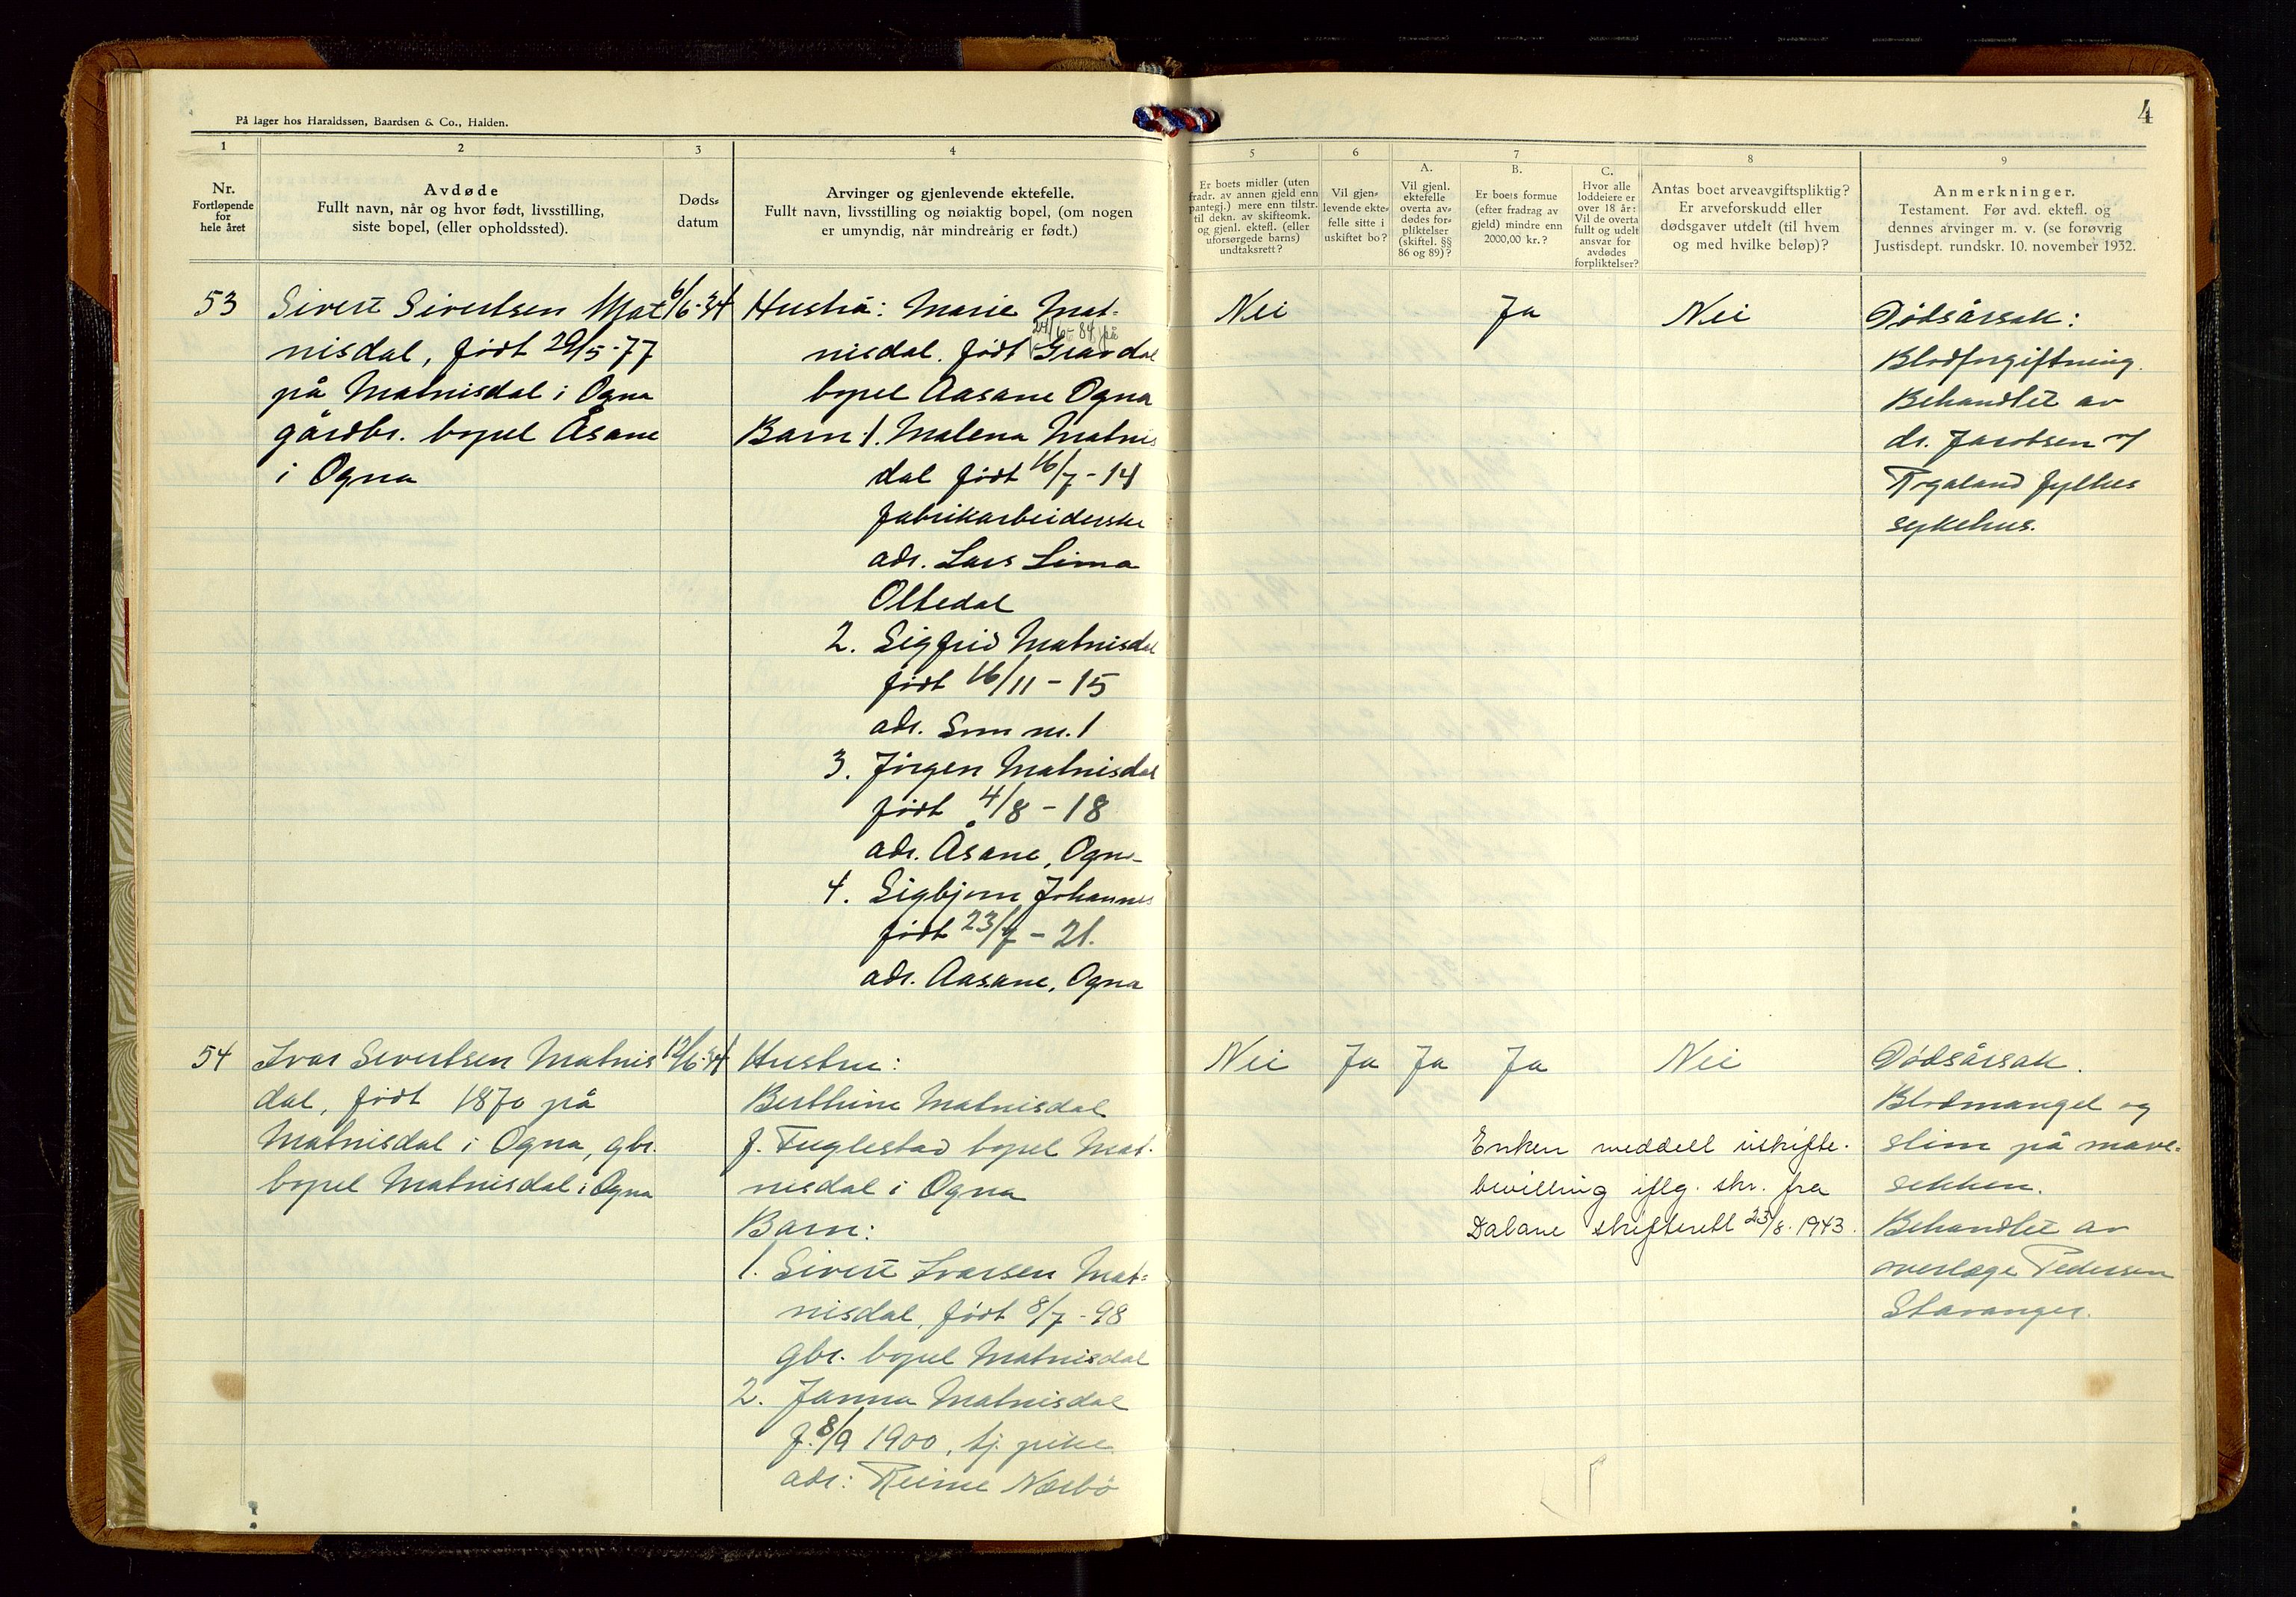 På lager hos Haraldssøn, Baardsen & Co., Halden.
4
1
2
3
4
5
6
7
8
9
Nr.
Fortløpende
for
hele året
Avdøde
Fullt navn, når og hvor født, livsstilling,
siste bopel, (eller opholdssted).
Døds-
datum
Arvinger og gjenlevende ektefelle.
Fullt navn, livsstilling og nøiaktig bopel, (om nogen
er umyndig, når mindreårig er født.)
Er boets midler (uten
fradr. av annen gjeld enn
pantegj.) mere enn tilstr.
til dekn. av skifteomk.
og gjenl. ektefl. (eller
uforsørgede barns)
undtaksrett?
Vil gjen-
levende ekte-
felle sitte i
uskiftet bo?
A.
Vil gjenl.
ektefelle
overta av-
dødes for-
pliktelser
(skiftel. §§
86 og 89)?
B.
Er boets formue
(efter fradrag av
gjeld) mindre enn
2000,00 kr.?
C.
Hvor alle
loddeiere er
over 18 år:
Vil de overta
fullt og udelt
ansvar for
avdødes
forpliktelser?
Antas boet arveavgiftspliktig?
Er arveforskudd eller
dødsgaver utdelt (til hvem
og med hvilke beløp)?
Anmerkninger.
Testament. Før avd. ektefl. og
dennes arvinger m. v. (se forøvrig
Justisdept. rundskr. 10. november 1932.
53
Sivert Sivertsen Mat
nisdal, født 29/5-77
på Matnisdal i Ogna
gårdbr. bopel Åsane
i Ogna
6/6-34
Hustru: Marie Mat-
24/6-84 på
nisdal. født Gravdal
bopel Aasane Ogna
Barn: 1. Malena Matnis
dal født 16/7-14
fabrikarbeiderske
adr. Lars Lima
Oltedal
2. Sigfrid Matnisdal
født 16/11-15
adr. Som nr. 1
3. Jörgen Matnisdal
født 4/8-18
adr. Åsane, Ogna
4. Sigbjørn Johannes
født 23/7-21.
adr. Aasane, Ogna
Nei
Ja
Nei
Dødsårsak:
Blodforgiftning.
Behandlet av
dr. Jacobsen v/
Rogaland fylkes
sykehus.
54
Ivar Sivertsen Matnis
dal, født 1870 på
Matnisdal i Ogna, gbr.
bopel Matnisdal i Ogna
12/6-34
Hustru:
Berthine Matnisdal
f. Fuglestad bopel Mat-
nisdal i Ogna
Barn:
1. Sivert Ivarsen Mat-
nisdal, født 8/7-98
gbr. bopel Matnisdal
2. Janna Matnisdal
f. 8/9 1900, tj. pike
adr: Reime Nærbø
Nei
Ja
Ja
Ja
Nei
Enken meddelt uskifte-
bevilling iflg. skr. fra
Dalane skifterett 23/8. 1943.
Dødsårsak.
Blodmangel og
slim på mave-
sekken.
Behandlet av
overlæge Pedersen
Stavanger.